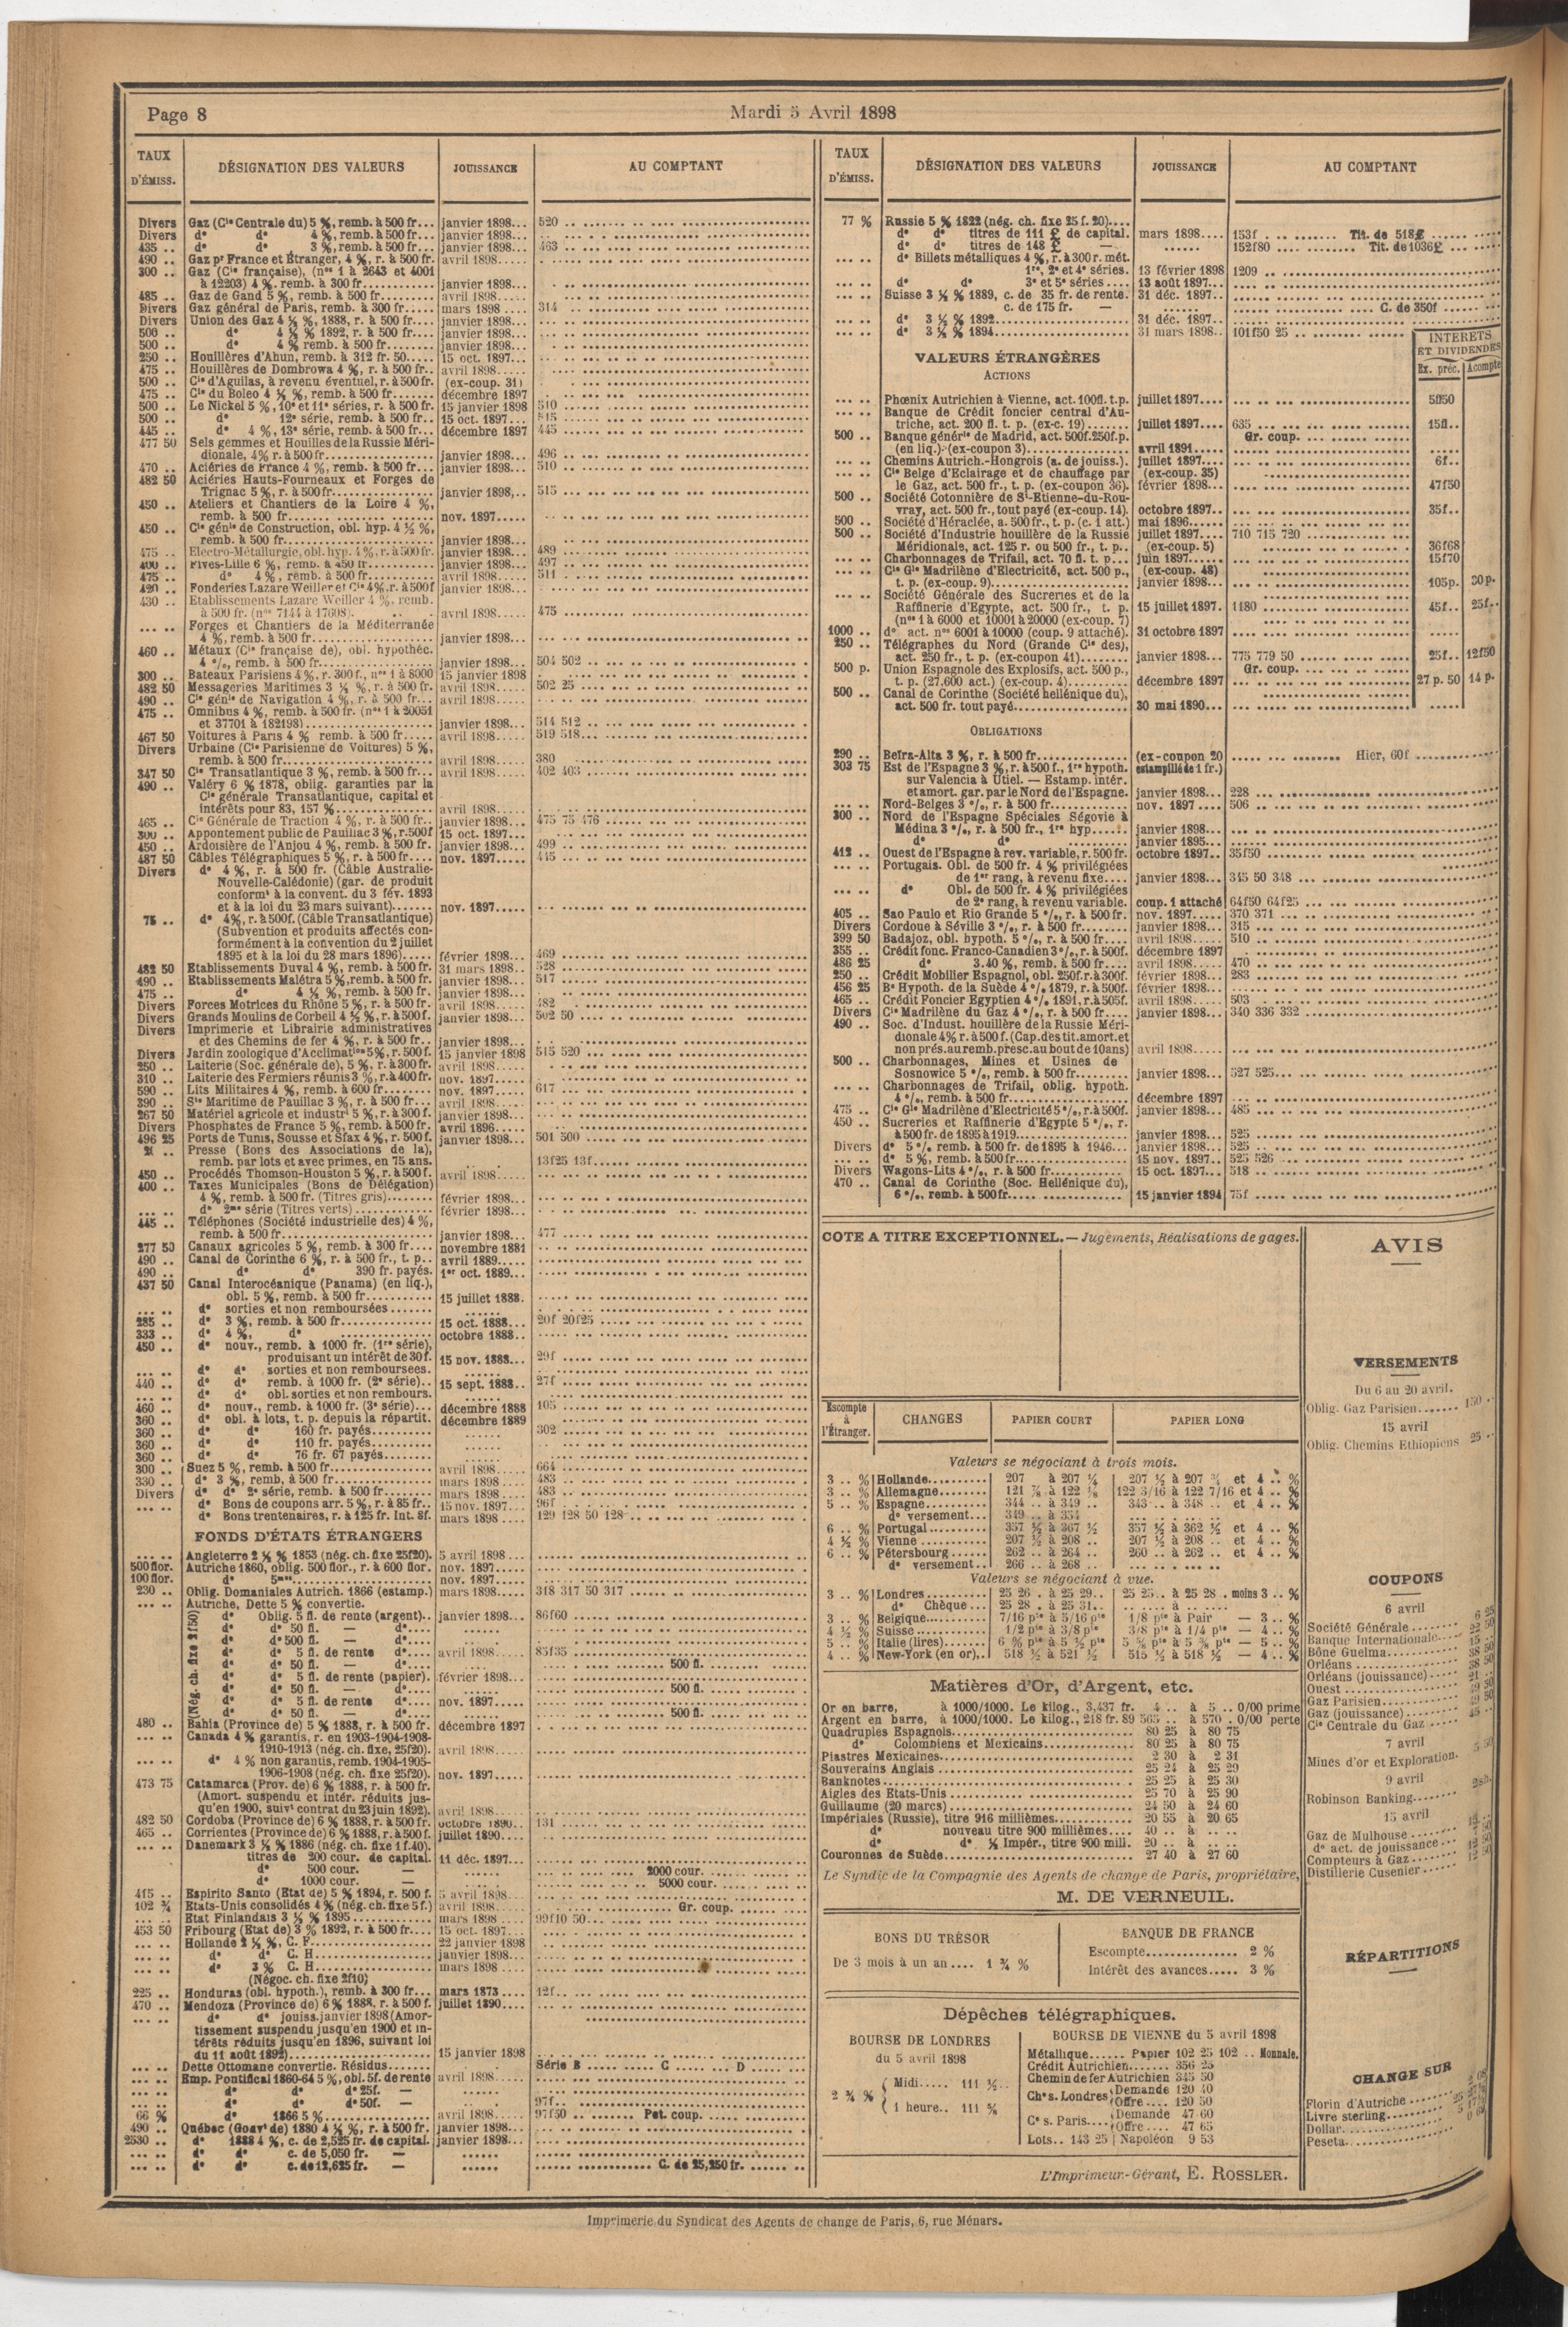 Page 8
Mardi 5 Avril 1898
TAUX D'ÉMISS. DÉSIGNATION DES VALEURS JOUISSANCE AU COMPTANT
Divers Gaz (Cie Centrale du) 5 %, remb. à 500 fr... janvier 1898... 520
Divers do do 4 %, remb. à 500 fr... janvier 1898...
435 .. do do 3 %, remb. à 500 fr... janvier 1898... 463
490 .. Gaz pr France et Étranger, 4 %, r. à 500 fr. avril 1898.....
300 .. Gaz (Cie française), (nos 1 à 2643 et 4001
à 12203) 4 %. remb. à 300 fr........... janvier 1898...
485 .. Gaz de Gand 5 %, remb. à 500 fr......... avril 1898.....
Divers Gaz général de Paris, remb. à 300 fr..... mars 1898 .... 314
Divers Union des Gaz 4 ½ %, 1888, r. à 500 fr.... janvier 1898...
500 .. do 4 ½ % 1892, r. à 500 fr.... janvier 1898...
500 .. do 4 % remb. à 500 fr........ janvier 1898...
250 .. Houillères d'Ahun, remb. à 312 fr. 50..... 15 oct. 1897...
475 .. Houillères de Dombrowa 4 %, r. à 500 fr.. avril 1898.....
500 .. Cie d'Aguilas, à revenu éventuel, r. à 500 fr. (ex-coup. 31)
475 .. Cie du Boleo 4 ½ %, remb. à 500 fr....... décembre 1897
500 .. Le Nickel 5 %, 10e et 11e séries, r. à 500 fr. 15 janvier 1898 510
500 .. 12e série, remb. à 500 fr.. 15 oct. 1897... 515
445 .. do 4 %, 13e série, remb. à 500 fr... décembre 1897 445
477 50 Sels gemmes et Houilles de la Russie Méri-
dionale, 4 % r. à 500 fr................ janvier 1898... 496
470 .. Aciéries de France 4 %, remb. à 500 fr... janvier 1898... 510
482 50 Aciéries Hauts-Fourneaux et Forges de
Trignac 5 %, r. à 500 fr............... janvier 1898,.. 515
450 .. Ateliers et Chantiers de la Loire 4 %,
remb. à 500 fr....................... nov. 1897.....
450 .. Cie génle de Construction, obl. hyp. 4 ½ %,
remb. à 500 fr....................... janvier 1898...
475 .. Electro-Métallurgie, obl. hyp. 4 %, r. à 500 fr. janvier 1898... 489
400 .. Fives-Lille 6 %, remb. à 450 fr........... janvier 1898... 497
475 .. do 4 %, remb. à 500 fr......... avril 1898..... 511
420 .. Fonderies Lazare Weiller et Cie 4 %, r. à 500 f janvier 1898...
430 .. Etablissements Lazare Weiller 4 %, remb.
à 500 fr. (nos 7144 à 17608). avril 1898..... 475
... .. Forges et Chantiers de la Méditerranée
4 %, remb. à 500 fr................. janvier 1898...
460 .. Métaux (Cie française de), obl. hypothéc.
4 %, remb. à 500 fr.................. janvier 1898... 504 502
300 .. Bateaux Parisiens 4 %, r. 300 f., nos 1 à 8000 15 janvier 1898
482 50 Messageries Maritimes 3 ½ %, r. à 500 fr. avril 1898..... 502 25
490 .. Cie génle de Navigation 4 %, r. à 500 fr... avril 1898.....
475 .. Omnibus 4 %, remb. à 500 fr. (nos 1 à 20051
et 37701 à 182193)................... janvier 1898... 514 512
467 50 Voitures à Paris 4 % remb. à 500 fr..... avril 1898..... 519 518
Divers Urbaine (Cie Parisienne de Voitures) 5 %,
remb. à 500 fr....................... avril 1898..... 380
347 50 Cie Transatlantique 3 %, remb. à 500 fr... avril 1898..... 402 403
490 .. Valéry 6 % 1878, oblig. garanties par la
Cie générale Transatlantique, capital et
intérêts pour 83, 157 %............... avril 1898.....
465 .. Cie Générale de Traction 4 %, r. à 500 fr.. janvier 1898... 475 75 476
300 .. Appontement public de Pauillac 3 %, r. 500 f 15 oct. 1897...
450 .. Ardoisière de l'Anjou 4 %, remb. à 500 fr. janvier 1898... 499
487 50 Câbles Télégraphiques 5 %, r. à 500 fr.... nov. 1897..... 445
Divers do 4 %, r. à 500 fr. (Câble Australie-
Nouvelle-Calédonie) (gar. de produit
conformt à la convent. du 3 fév. 1893
et à la loi du 23 mars suivant)....... nov. 1897.....
75 .. do 4 %, r. à 500 f. (Câble Transatlantique)
(Subvention et produits affectés con-
formément à la convention du 2 juillet
1895 et à la loi du 28 mars 1896)..... février 1898... 469
482 50 Etablissements Duval 4 %, remb. à 500 fr. 31 mars 1898.. 528
490 .. Etablissements Malétra 5 %, remb. à 500 fr. janvier 1898... 517
475 .. do 4 ½ %, remb. à 500 fr. janvier 1898...
Divers Forces Motrices du Rhône 5 %, r. à 500 fr. avril 1898..... 482
Divers Grands Moulins de Corbeil 4 ½ %, r. à 500 f. janvier 1898... 502 50
Divers Imprimerie et Librairie administratives
et des Chemins de fer 4 %, r. à 500 fr.. janvier 1898...
Divers Jardin zoologique d'Acclimation 5 %, r. 500 f. 15 janvier 1898 515 520
250 .. Laiterie (Soc. générale de), 5 %, r. à 300 fr. avril 1898.....
310 .. Laiterie des Fermiers réunis 3 %, r. à 400 fr. nov. 1897.....
590 .. Lits Militaires 4 %, remb. à 600 fr........ nov. 1897..... 617
390 .. Sté Maritime de Pauillac 3 %, r. à 500 fr... avril 1898.....
267 50 Matériel agricole et industrl 5 %, r. à 300 f. janvier 1898...
Divers Phosphates de France 5 %, remb. à 500 fr. avril 1896.....
496 25 Ports de Tunis, Sousse et Sfax 4 %, r. 500 f. janvier 1898... 501 500
21 .. Presse (Bons des Associations de la),
remb. par lots et avec primes, en 75 ans. 13f25 13f
450 .. Procédés Thomson-Houston 5 %, r. à 500 f. avril 1898.....
400 .. Taxes Municipales (Bons de Délégation)
4 %, remb. à 500 fr. (Titres gris)........ février 1898...
... .. do 2me série (Titres verts)............ février 1898...
445 .. Téléphones (Société industrielle des) 4 %,
remb. à 500 fr....................... janvier 1898... 477
277 50 Canaux agricoles 5 %, remb. à 300 fr.... novembre 1881
490 .. Canal de Corinthe 6 %, r. à 500 fr., t. p.. avril 1889.....
490 .. do do 390 fr. payés. 1er oct. 1889...
437 50 Canal Interocéanique (Panama) (en liq.),
obl. 5 %, remb. à 500 fr........... 15 juillet 1888.
... .. do sorties et non remboursées.......
285 .. do 3 %, remb. à 500 fr.............. 15 oct. 1888... 20f 20f25
333 .. do 4 %, do .............. octobre 1888..
450 .. do nouv., remb. à 1000 fr. (1re série),
produisant un intérêt de 30 f. 15 nov. 1888... 29f
... .. do do sorties et non remboursees.
440 .. do do remb. à 1000 fr. (2e série)... 15 sept. 1888.. 27f
... .. do do obl. sorties et non rembours.
460 .. do nouv., remb. à 1000 fr. (3e série)... décembre 1888 105
360 .. do obl. à lots, t. p. depuis la répartit. décembre 1889
360 .. do do 160 fr. payés.......... 302
360 .. do do 110 fr. payés..........
360 .. do do 76 fr. 67 payés........
300 .. Suez 5 %, remb. à 500 fr................ avril 1898..... 664
330 .. do 3 %, remb, à 500 fr............... mars 1898..... 483
Divers do do 2e série, remb. à 500 fr........ mars 1898..... 483
... .. do Bons de coupons arr. 5 %, r. à 85 fr.. 15 nov. 1897... 96f
do Bons trentenaires, r. à 125 fr. Int. 8f. mars 1898.... 129 128 50 128
FONDS D'ÉTATS ÉTRANGERS
... .. Angleterre 2 ½ % 1853 (nég. ch. fixe 25f20). 5 avril 1898...
500 flor. Autriche 1860, oblig. 500 flor., r. à 600 flor. nov. 1897....
100 flor. do 5mes.................... nov. 1897....
230 .. Oblig. Domaniales Autrich. 1866 (estamp.) mars 1898.... 318 317 50 317
... .. Autriche, Dette 5 % convertie.
(Nég. ch. fixe 2f50)
do Oblig. 5 fl. de rente (argent).. janvier 1898... 86f60
do do 50 fl. — do....
do do 500 fl. — do....
do do 5 fl. de rente do.... avril 1898..... 85f35
do do 50 fl. — do.... 500 fl.
do do 5 fl. de rente (papier). février 1898...
do do 50 fl. — do.... 500 fl.
do do 5 fl. de rente do.... nov. 1897.....
do do 50 fl. — do.... 500 fl.
480 .. Bahia (Province de) 5 % 1888, r. à 500 fr. décembre 1897
... .. Canada 4 % garantis, r. en 1903-1904-1908-
1910-1913 (nég. ch. fixe, 25f20). avril 1898.....
... .. do 4 % non garantis, remb. 1904-1905-
1906-1908 (nég. ch. fixe 25f20). nov. 1897.....
473 75 Catamarca (Prov. de) 6 % 1888, r. à 500 fr.
(Amort. suspendu et intér. réduits jus-
qu'en 1900, suivt contrat du 23 juin 1892). avril 1898.....
482 50 Cordoba (Province de) 6 % 1888, r. à 500 fr. octobre 1890.. 131
465 .. Corrientes (Province de) 6 % 1888, r. à 500 f. juillet 1890....
... .. Danemark 3 ½ % 1886 (nég. ch. fixe 1 f. 40).
titres de 200 cour. de capital. 11 déc. 1897...
do 500 cour. — 2000 cour.
do 1000 cour. — 5000 cour.
415 .. Espirito Santo (Etat de) 5 % 1894, r. 500 f. 5 avril 1898...
102 ¾ Etats-Unis consolidés 4 % (nég. ch. fixe 5 f.) avril 1898..... Gr. coup.
... .. Etat Finlandais 3 ½ % 1895............ mars 1898.... 99f10 50
453 50 Fribourg (Etat de) 3 % 1892, r. à 500 fr.... 15 oct. 1897...
... .. Hollande 2 ½ %, C. F................... 22 janvier 1898
... .. do do C. H................... janvier 1898...
... .. do 3 % C. H................... mars 1898....
(Négoc. ch. fixe 2f10)
225 .. Honduras (obl. hypoth.), remb. à 300 fr... mars 1873.... 12f
470 .. Mendoza (Province de) 6 % 1888, r. à 500 f. juillet 1890....
... .. do do jouiss. janvier 1898 (Amor-
tissement suspendu jusqu'en 1900 et in-
térêts réduits jusqu'en 1896, suivant loi
du 11 août 1892)..................... 15 janvier 1898
... .. Dette Ottomane convertie. Résidus....... Série B ......... C ...... D
... .. Emp. Pontifical 1860-64 5 %, obl. 5f. de rente avril 1898.....
... .. do do do 25f. —
... .. do do do 50f. — 97f
66 % do 1866 5 %................ avril 1898..... 97f50 Pet. coup.
490 .. Québec (Gouvt de) 1880 4 ½ %, r. à 500 fr. janvier 1898...
2530 .. do 1888 4 %, c. de 2,525 fr. de capital. janvier 1898...
... .. do do c. de 5,050 fr. —
... .. do do c. de 12,625 fr. — C. de 25,250 fr.
TAUX D'ÉMISS. DÉSIGNATION DES VALEURS JOUISSANCE AU COMPTANT
77 % Russie 5 % 1822 (nég. ch. fixe 25 f. 20)....
do do titres de 111 £ de capital. mars 1898.... 153f Tit. de 518£
do do titres de 148 £ — 152f80 Tit. de 1036£
... .. do Billets métalliques 4 %, r. à 300 r. mét.
1re, 2e et 4e séries. 13 février 1898 1209
... .. do do 3e et 5e séries.... 13 août 1897...
... .. Suisse 3 ½ % 1889, c. de 35 fr. de rente. 31 déc. 1897..
c. de 175 fr. — C. de 350f
... .. do 3 ½ % 1892..................... 31 déc. 1897..
... .. do 3 ½ % 1894..................... 31 mars 1898.. 101f50 25
INTERETS ET DIVIDENDES
Ex. préc. Acompte
VALEURS ÉTRANGÈRES
ACTIONS
... .. Phœnix Autrichien à Vienne, act. 100fl. t. p. juillet 1897.... 5fl50
... .. Banque de Crédit foncier central d'Au-
triche, act. 200 fl. t. p. (ex-c. 19)....... juillet 1897.... 635 15fl..
500 .. Banque génerle de Madrid, act. 500f. 250f. p. Gr. coup.
(en liq.) (ex-coupon 3)................ avril 1891....
... .. Chemins Autrich.-Hongrois (a. de jouiss.). juillet 1897.... 6f..
... .. Cie Belge d'Eclairage et de chauffage par (ex-coup. 35)
le Gaz, act. 500 fr., t. p. (ex-coupon 36). février 1898... 47f50
500 .. Société Cotonnière de St-Etienne-du-Rou-
vray, act. 500 fr., tout payé (ex-coup. 14). octobre 1897.. 35f..
500 .. Société d'Héraclée, a. 500 fr., t. p. (c. 1 att.) mai 1896......
500 .. Société d'Industrie houillère de la Russie juillet 1897.... 710 715 720
Méridionale, act. 125 r. ou 500 fr., t. p.. (ex-coup. 5) 36f68
... .. Charbonnages de Trifail, act. 70 fl. t. p... juin 1897...... 15f70
... .. Cie Gle Madrilène d'Electricité, act. 500 p., (ex-coup. 48)
t. p. (ex-coup. 9)..................... janvier 1898... 105p. 30 p.
... .. Société Générale des Sucreries et de la
Raffinerie d'Egypte, act. 500 fr., t. p. 15 juillet 1897. 1180 45f.. 25f..
(nos 1 à 6000 et 10001 à 20000 (ex-coup. 7)
1000 .. do act. nos 6001 à 10000 (coup. 9 attaché). 31 octobre 1897
250 .. Télégraphes du Nord (Grande Cie des),
act. 250 fr., t. p. (ex-coupon 41)........ janvier 1898... 775 779 50 25f.. 12f50
500 p. Union Espagnole des Explosifs, act. 500 p., Gr. coup.
t. p. (27.600 act.) (ex-coup. 4).......... décembre 1897 27 p. 50 14 p.
500 .. Canal de Corinthe (Société hellénique du),
act. 500 fr. tout payé.................. 30 mai 1890...
OBLIGATIONS
290 .. Beïra-Alta 3 %, r. à 500 fr.............. (ex-coupon 20 Hier, 60f
303 75 Est de l'Espagne 3 %, r. à 500 f., 1re hypoth. estampillé de 1 fr.)
sur Valencia à Utiel. — Estamp. intér.
et amort. gar. par le Nord de l'Espagne. janvier 1898... 228
... .. Nord-Belges 3 %, r. à 500 fr............ nov. 1897.... 506
300 .. Nord de l'Espagne Spéciales Ségovie à
Médina 3 %, r. à 500 fr., 1re hyp..... janvier 1898...
do do ......... janvier 1895...
412 .. Ouest de l'Espagne à rev. variable, r. 500 fr. octobre 1897.. 35f50
... .. Portugais. Obl. de 500 fr. 4 % privilégiées
de 1er rang, à revenu fixe.... janvier 1898... 345 50 348
... .. do Obl. de 500 fr. 4 % privilégiées
de 2e rang, à revenu variable. coup. 1 attaché 64f50 64f25
405 .. Sao Paulo et Rio Grande 5 %, r. à 500 fr. nov. 1897..... 370 371
Divers Cordoue à Séville 3 %, r. à 500 fr....... janvier 1898... 315
399 50 Badajoz, obl. hypoth. 5 %, r. à 500 fr.... avril 1898..... 510
355 .. Crédit fonc. Franco-Canadien 3 %, r. à 500f. décembre 1897
486 25 do 3.40 %, remb. à 500 fr.... avril 1898..... 470
250 .. Crédit Mobilier Espagnol, obl. 250f. r. à 300f. février 1898... 283
456 25 Be Hypoth. de la Suède 4 % 1879, r. à 500f. février 1898...
465 .. Crédit Foncier Egyptien 4 % 1891, r. à 505f. avril 1898..... 503
Divers Cie Madrilène du Gaz 4 %, r. à 500 fr.... janvier 1898... 340 336 332
490 .. Soc. d'Indust. houillère de la Russie Méri-
dionale 4 % r. à 500 f. (Cap. des tit. amort. et
non prés. au remb. presc. au bout de 10 ans) avril 1898.....
500 .. Charbonnages, Mines et Usines de
Sosnowice 5 %, remb. à 500 fr......... janvier 1898... 527 525
... .. Charbonnages de Trifail, oblig. hypoth.
4 %, remb. à 500 fr.................. décembre 1897
475 .. Cie Gle Madrilène d'Electricité 5 %, r. à 500f. janvier 1898... 485
450 .. Sucreries et Raffinerie d'Egypte 5 %, r.
à 500 fr. de 1895 à 1919................ janvier 1898... 525
Divers do 5 %, remb. à 500 fr. de 1895 à 1946... janvier 1898... 525
... .. do 5 %, remb. à 500 fr................ 15 nov. 1897.. 525 526
Divers Wagons-Lits 4 %, r. à 500 fr............ 15 oct. 1897... 518
470 .. Canal de Corinthe (Soc. Hellénique du),
6 %, remb. à 500 fr.................. 15 janvier 1894 75f
COTE A TITRE EXCEPTIONNEL. — Jugements, Réalisations de gages.
Escompte à l'Étranger. CHANGES PAPIER COURT PAPIER LONG
Valeurs se négociant à trois mois.
3 .. % Hollande......... 207 à 207 ¼ 207 ½ à 207 ¾ et 4 .. %
3 .. % Allemagne........ 121 ⅞ à 122 ⅛ 122 3/16 à 122 7/16 et 4 .. %
5 .. % Espagne.......... 344 .. à 349 .. 343 .. à 348 .. et 4 .. %
do versement... 349 .. à 354
6 .. % Portugal......... 357 ½ à 367 ½ 357 ½ à 362 ½ et 4 .. %
4 ½ % Vienne.......... 207 ½ à 208 .. 207 ½ à 208 .. et 4 .. %
6 .. % Pétersbourg...... 262 .. à 264 .. 260 .. à 262 .. et 4 .. %
do versement.. 266 .. à 268 ..
Valeurs se négociant à vue.
3 .. % Londres.......... 25 26 . à 25 29.. 25 25.. à 25 28 . moins 3 .. %
do Chèque... 25 28 . à 25 31.. .. .... à .. ....
3 .. % Belgique.......... 7/16 pte à 5/16 pte 1/8 pte à Pair — 3 .. %
4 ½ % Suisse........... 1/2 pte à 3/8 pte 3/8 pte à 1/4 pte — 4 .. %
5 .. % Italie (lires)....... — 5 .. %
4 .. % New-York (en or).. 518 ½ à 521 ½ 515 ½ à 518 ½ — 4 .. %
Matières d'Or, d'Argent, etc.
Or en barre, à 1000/1000. Le kilog., 3,437 fr. 4 .. à 5 .. 0/00 prime
Argent en barre, à 1000/1000. Le kilog., 218 fr. 89 565 .. à 570 . 0/00 perte
Quadruples Espagnols........ 80 25 à 80 75
do Colombiens et Mexicains........ 80 25 à 80 75
Piastres Mexicaines........ 2 30 à 2 31
Souverains Anglais........ 25 24 à 25 29
Banknotes........ 25 25 à 25 30
Aigles des Etats-Unis........ 25 70 à 25 90
Guillaume (20 marcs)........ 24 50 à 24 60
Impériales (Russie), titre 916 millièmes........ 20 55 à 20 65
do nouveau titre 900 millièmes.... 40 .. à .. ..
do do ½ Impér., titre 900 mill. 20 .. à .. ..
Couronnes de Suède........ 27 40 à 27 60
Le Syndic de la Compagnie des Agents de change de Paris, propriétaire,
M. DE VERNEUIL.
BONS DU TRÉSOR
De 3 mois à un an.... 1 ¾ %
BANQUE DE FRANCE
Escompte.............. 2 %
Intérêt des avances..... 3 %
Dépêches télégraphiques.
BOURSE DE LONDRES
du 5 avril 1898
2 ¾ % Midi..... 111 ½..
1 heure.. 111 ⅝
BOURSE DE VIENNE du 5 avril 1898
Métallique...... Papier 102 25 102 .. Monnaie.
Crédit Autrichien....... 356 25
Chemin de fer Autrichien 345 50
Ches. Londres Demande 120 40
Offre.... 120 50
Ces. Paris.... Demande 47 60
Offre.... 47 65
Lots.. 143 25 Napoléon 9 53
L'Imprimeur-Gérant, E. ROSSLER.
AVIS
VERSEMENTS
Du 6 au 20 avril.
Oblig. Gaz Parisien....... 150 ..
15 avril
Oblig. Chemins Ethiopiens 25 ..
COUPONS
6 avril
Société Générale........ 6 25
Banque Internationale... 22 50
Bône Guelma.......... 15 ..
Orléans.............. 38 50
Orléans (jouissance)..... 38 50
Ouest............... 21 ..
Gaz Parisien.......... 49 50
Gaz (jouissance)....... 49 50
Cie Centrale du Gaz..... 45 ..
7 avril
Mines d'or et Exploration. 5 50
9 avril
Robinson Banking........ 2sh.
15 avril
Gaz de Mulhouse.......
do act. de jouissance...
Compteurs à Gaz........
Distillerie Cusenier...... 12 50
RÉPARTITIONS
CHANGE SUR
Florin d'Autriche........
Livre sterling..........
Dollar................
Peseta................
Imprimerie du Syndicat des Agents de change de Paris, 6, rue Ménars.